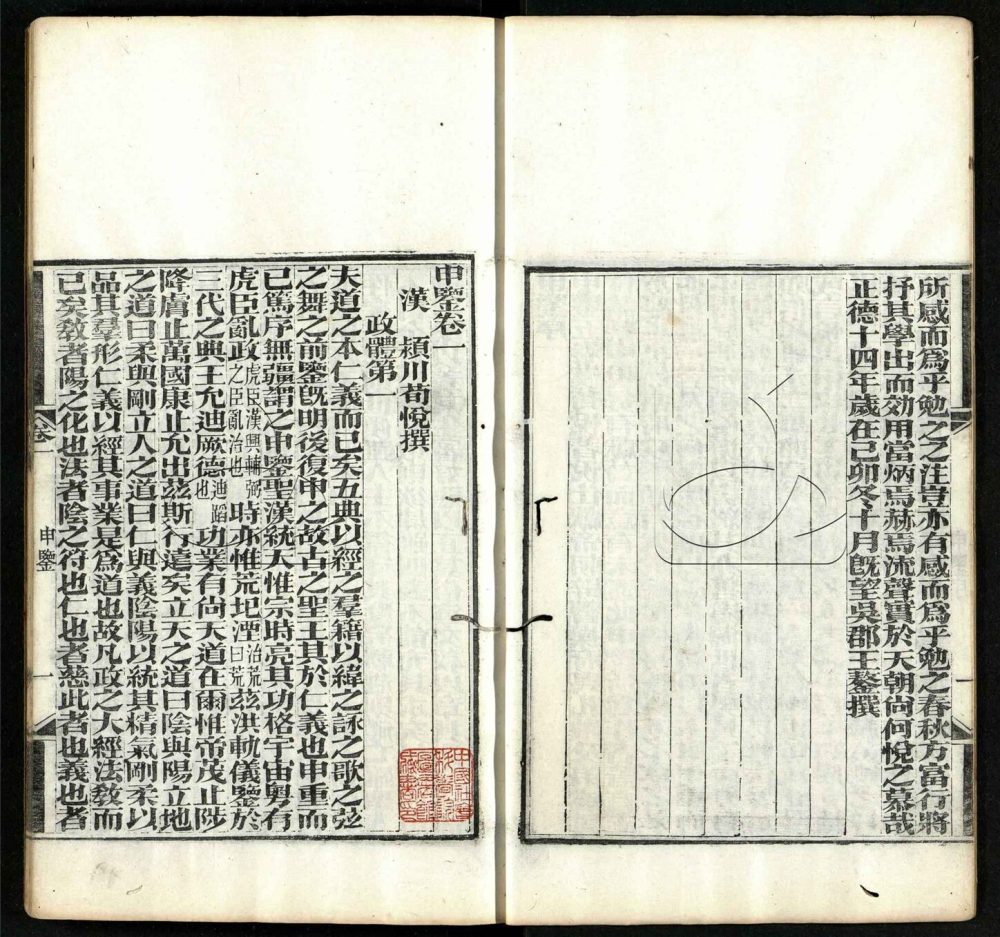 所感而爲乎勉之之注豈亦有感而爲乎勉之春秋方富行將
抒其學出而効用當炳焉赫焉流聲實於天朝尚何悅之慕哉
正德十四年歲在己卯冬十月既望吳郡王鏊撰
申鑒卷一
漢 潁川荀悅撰
政體第一
夫道之本仁義而已矣五典以經之羣籍以緯之詠之歌之弦
之舞之前鑒既明後復申之故古之聖王其於仁義也申重而
已篤序無疆謂之申鑒聖漢統天惟宗時亮其功格宇宙粤有
虎臣亂政虎臣漢興輔弼之臣亂治也時亦惟荒圮湮治荒曰荒茲洪軌儀鑒於
三代之典王允迪厥德迪蹈也功業有尚天道在爾惟帝茂止陟
降膚止萬國康止允出茲斯行遠矣立天之道曰陰與陽立地
之道曰柔與剛立人之道曰仁與義陰陽以統其精氣剛柔以
品其羣形仁義以經其事業是爲道也故凡政之大經法教而
已矣教者陽之化也法者陰之符也仁也者慈此者也義也者
卷一
申鑒
一